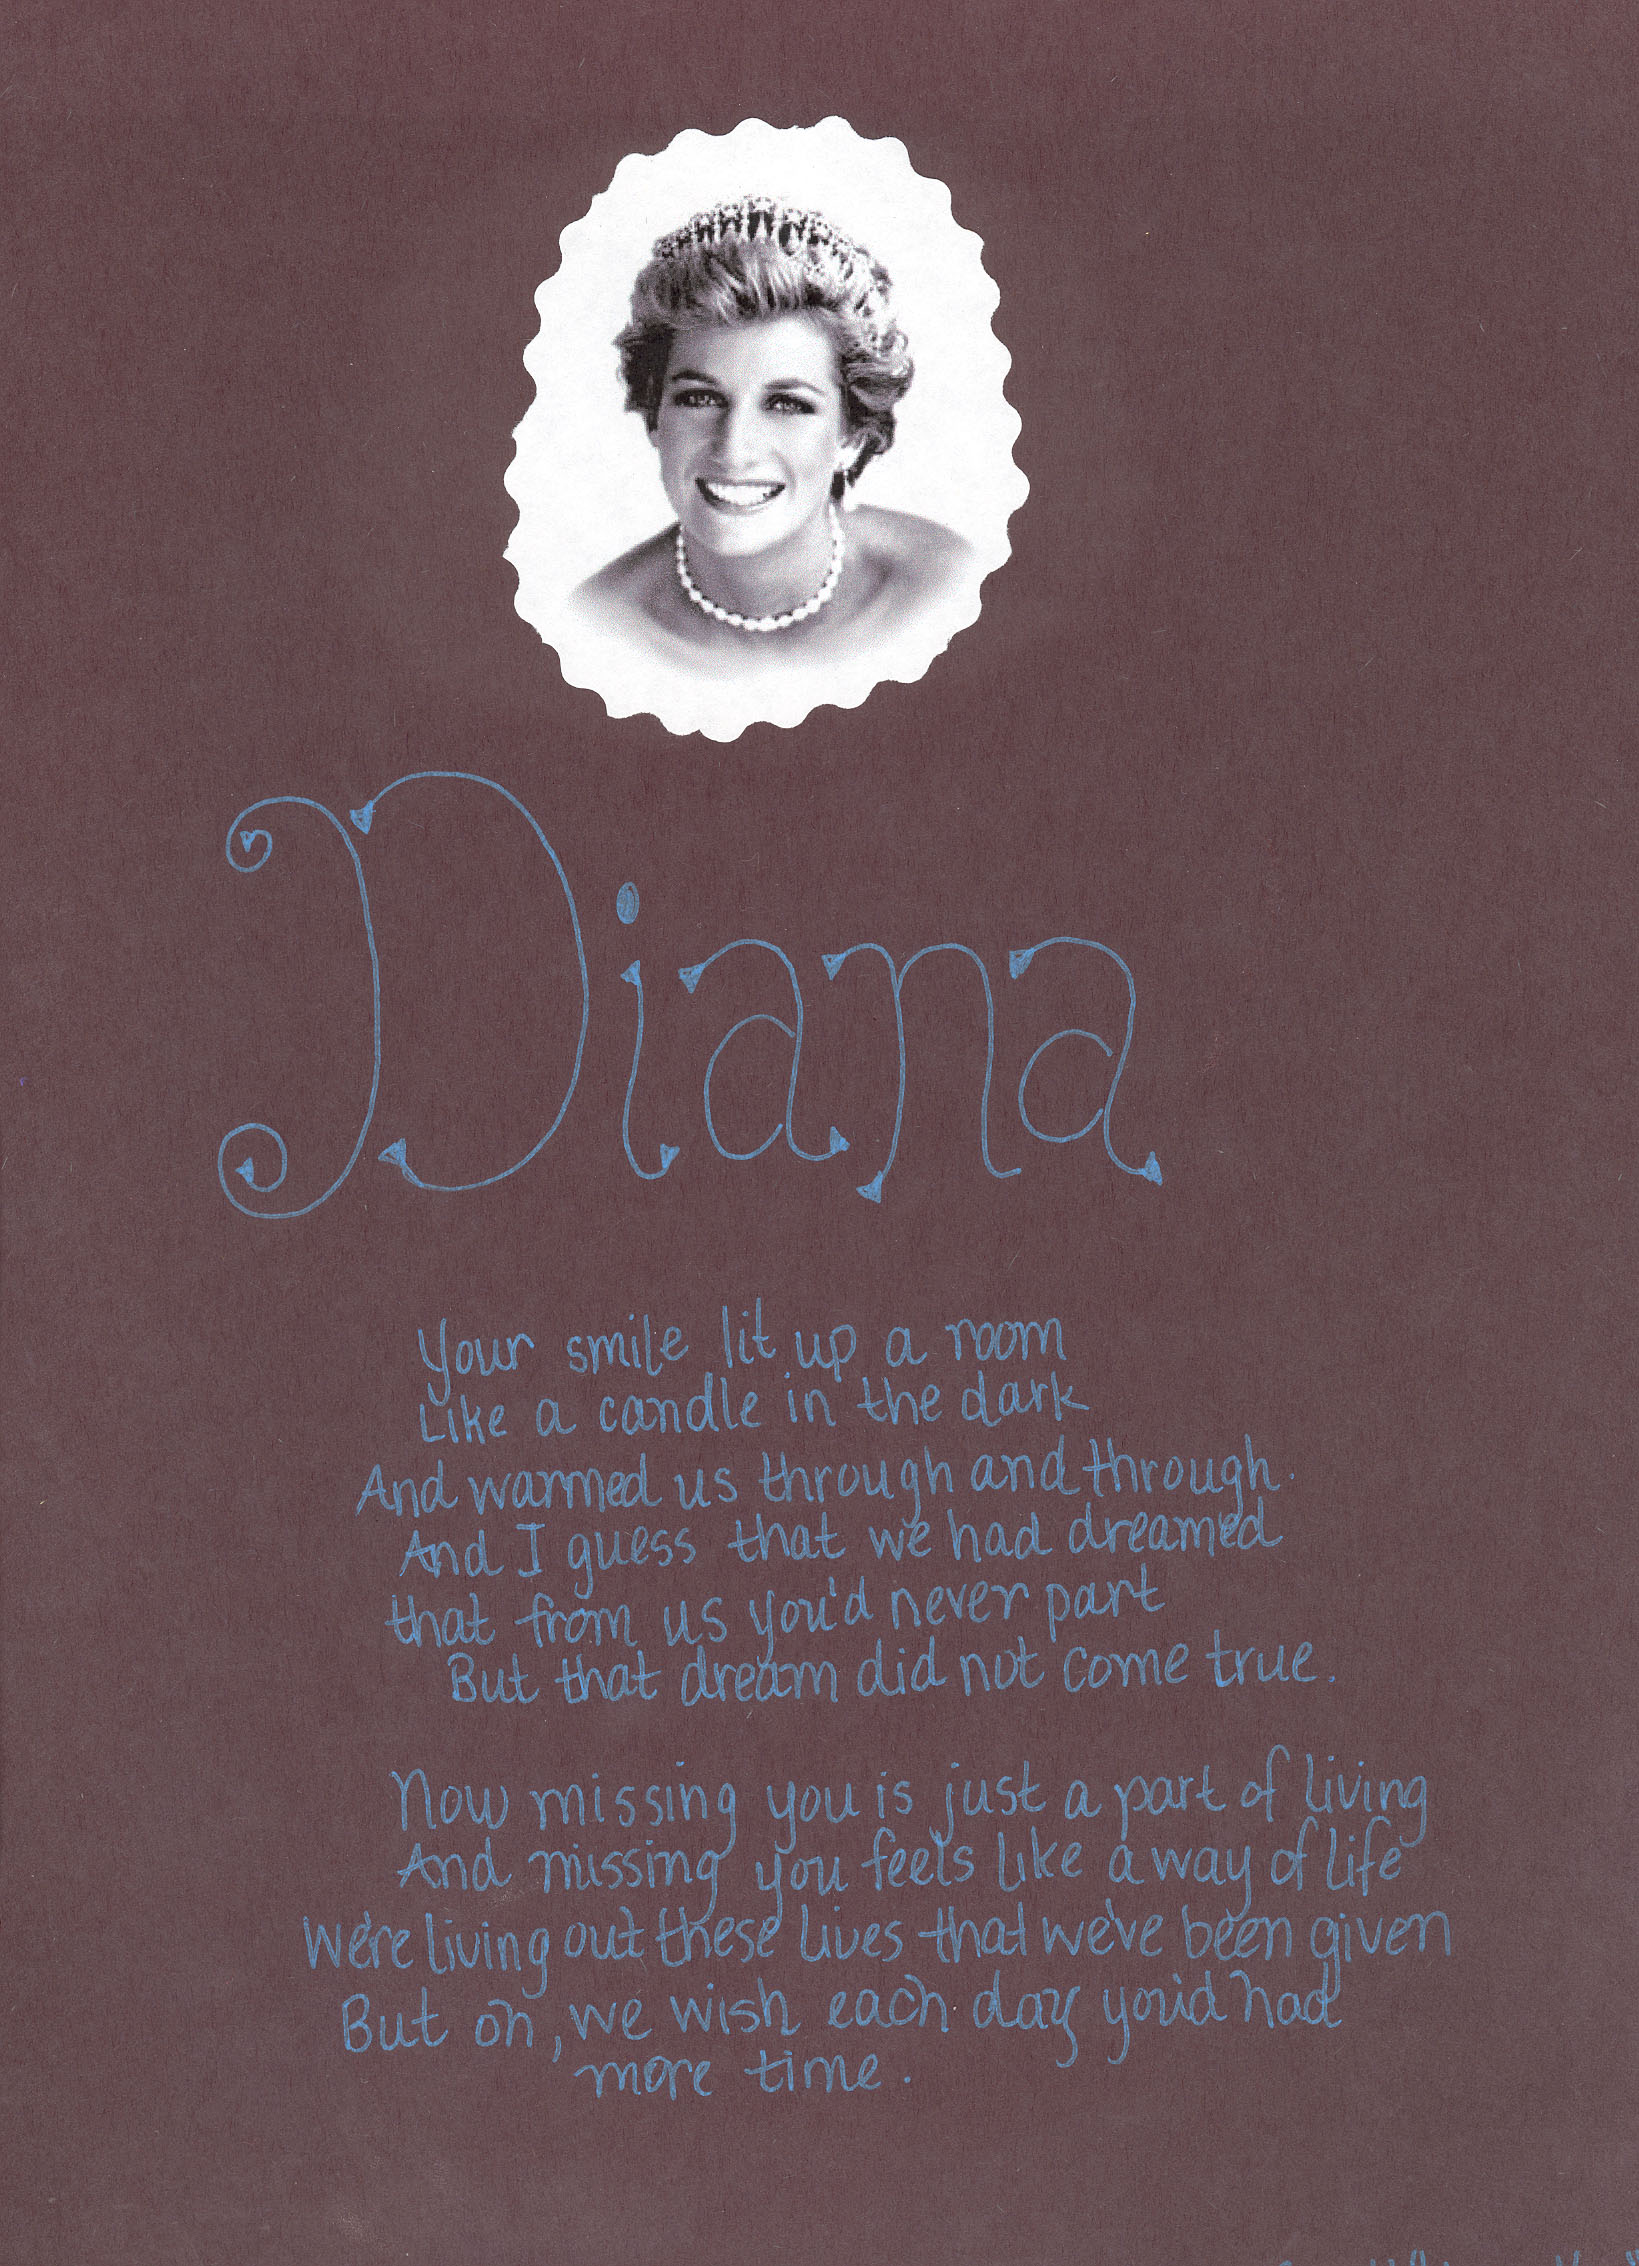 Diana
Your smile lit up a room
Like a candle in the dark
And warmed us through and through.
And I guess that we had dreamed
that from us you'd never part
But that dream did not come true.
Now missing you is just a part of living
And missing you feels like a way of life
We're living out these lives that we've been given
But oh, we wish each day you'd had
more time.